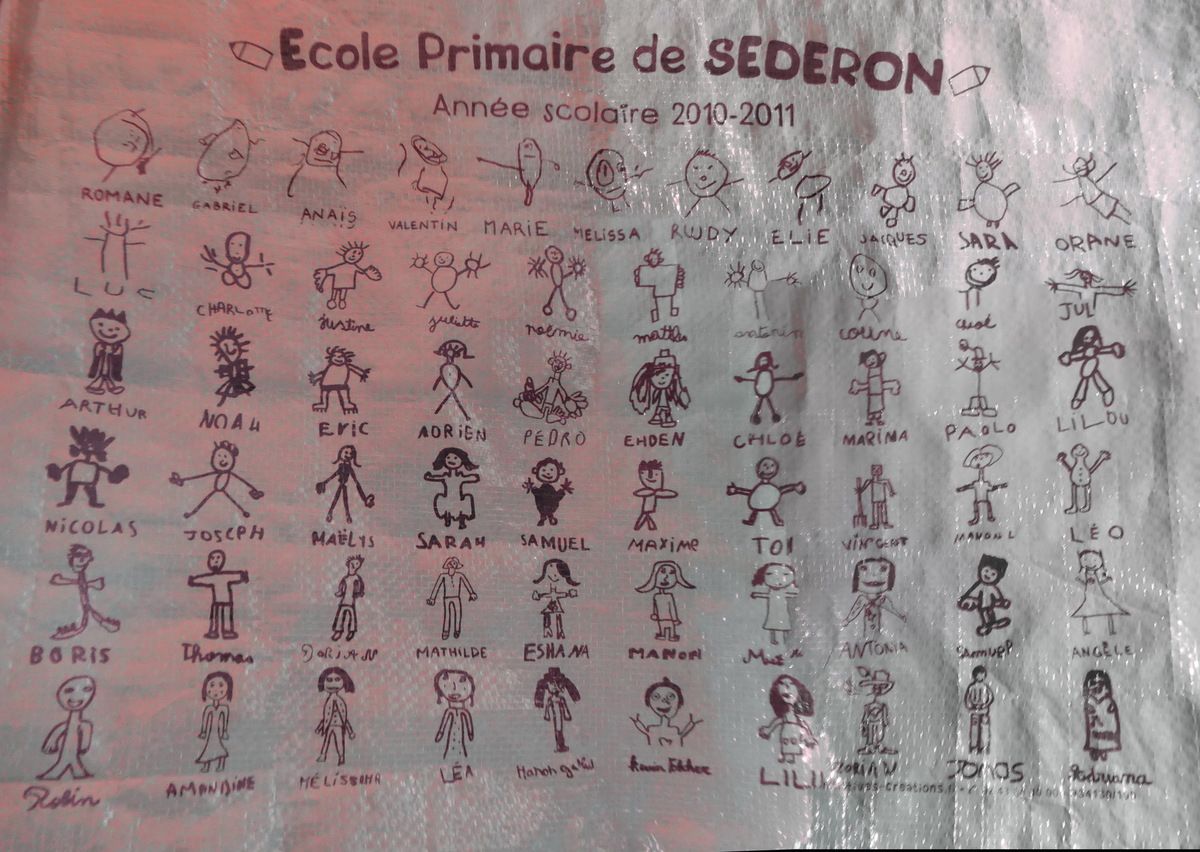 Ecole Primaire de SEDERON
Année scolaire 2010-2011
ROMANE GABRIEL ANAÏS VALENTIN MARIE MELISSA RUDY ELIE JACQUES SARA ORANE
LUC CHARLOTTE justine juliette noémie matthis antonin coline chloé JUL
ARTHUR NOAH ERIC ADRIEN PÉDRO EHDEN CHLOÉ MARINA PAOLO LILOU
NiCOLAS JOSEPH MAËLYS SARAH SAMUEL MAXiME TOI VINCENT MANON L LÉO
BORIS Thomas DORIAN MATHILDE ESHANA MANON ANTONIA SAMUEL ANGÈLE
Robin AMANDINE MÉLISSANA LÉA LILI DORIAN JONAS Adriana